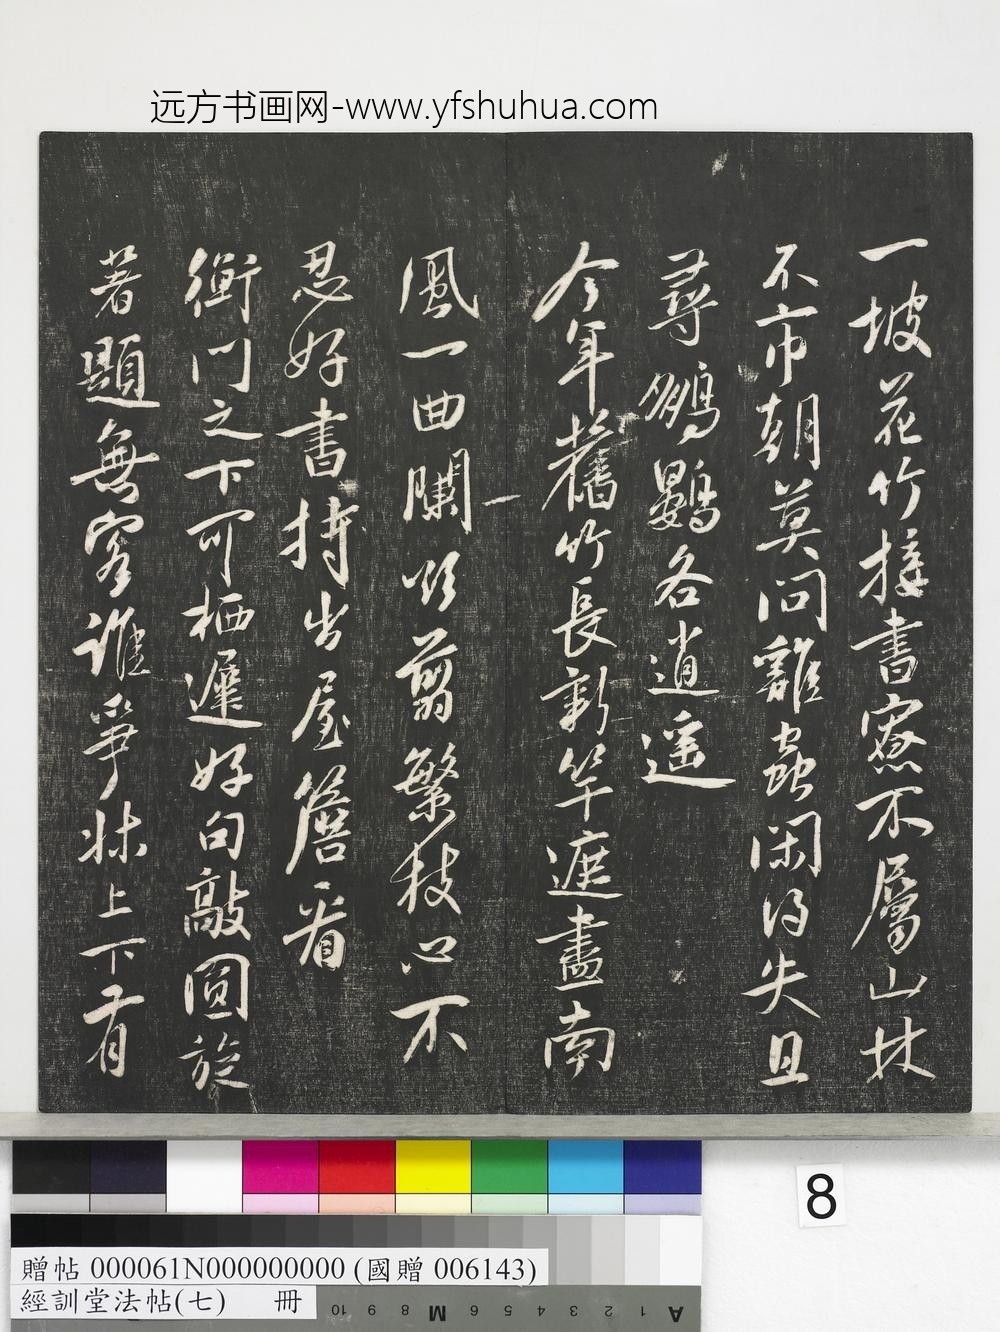 远方书画网-www.yfshuhua.com
一坡花竹接書寮不屬山林
不市朝莫問雞蟲閑得失且
尋鵬鷃各逍遥
今年舊竹長新竿遮盡南
風一曲闌欲剪繁枝心不
忍好書持出屋簷看
衡門之下可栖遲好句敲圓旋
著題無客誰爭牀上下有
8
贈帖 000061N000000000 (國贈 006143)
經訓堂法帖(七) 冊
10 9 8 M 6 5 4 3 2 1 A